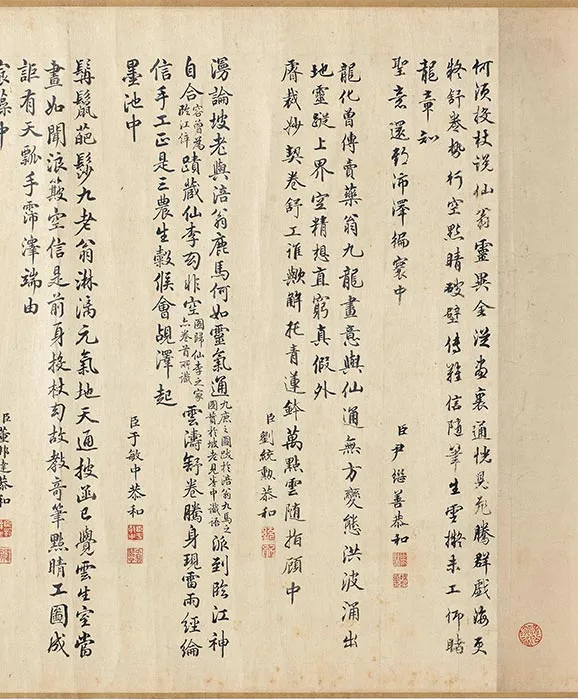 何須投杖說仙翁靈異全從畫裏通恍見飛騰群戲海更
將舒卷勢行空點睛破壁傳難信隨筆生雲擬未工仰睹
龍章知
聖意還祈沛澤徧寰中
臣尹繼善恭和
龍化曾傳賣藥翁九龍畫意與仙通無方變態洪波涌出
地靈蹤上界空精想直窮真假外
睿裁妙契卷舒工誰歟解托青蓮鉢萬點雲隨指顧中
臣劉統勲恭和
漫論坡老與涪翁鹿馬何如靈氣通九鹿之圖跋於涪翁九馬之圖贊於坡老見岑中識語派到臨江神
自合容曾為臨江倅蹟藏仙李幻非空國歸仙李之家亦卷首所識雲濤舒卷騰身現雷雨經綸
信手工正是三農生穀候會覘澤起
墨池中
臣于敏中恭和
髯鬣葩髿九老翁淋漓元氣地天通披函已覺雲生室當
畫如聞浪簸空信是前身投杖幻故教奇筆點睛工圖成
詎有天瓢手霈澤端由
宸藻中
臣董邦達恭和